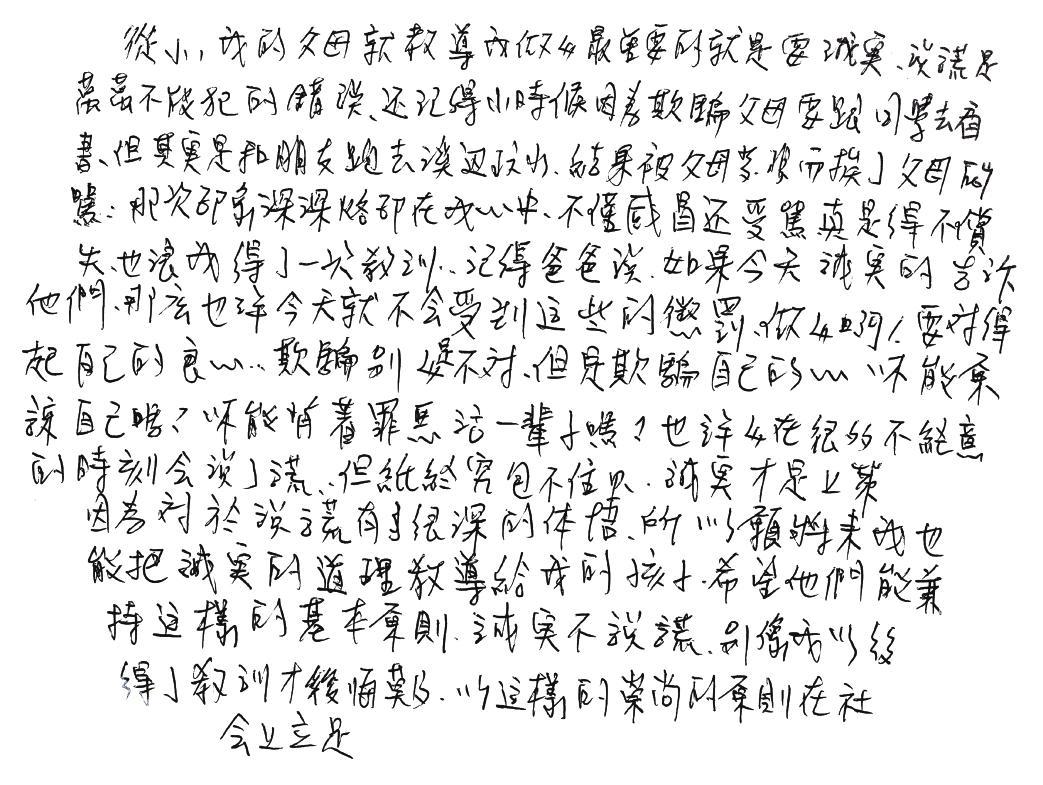 從小,我的父母就教導我做人最重要的就是要誠実、說謊是
萬萬不能犯的錯誤、还記得小時候因為欺騙父母要跟同學去看
書、但其実是和朋友跑去溪边玩水、結果被父母發現而挨了父母的
罵;那次印象深深烙印在我心中、不僅感冒还受罵真是得不償
失、也讓我得了一次教訓、記得爸爸說、如果今天誠実的告訴
他們、那広也許今天就不会受到這些的懲罰、做人啊!要对得
起自己的良心、欺騙別人是不对、但是欺騙自己的心你能原
諒自己嗎?你能背着罪惡活一輩子嗎?也許人在很的不経意
的時刻会說了謊、但紙終究包不住火、誠実才是上策
因為对於說謊有了很深的体悟、所以願將來我也
能把誠実的道理教導給我的孩子、希望他們能兼
持這樣的基本原則、誠実不說謊、別像我以後
得了教訓才後悔莫及、以這樣的榮尚的原則在社
会上立足